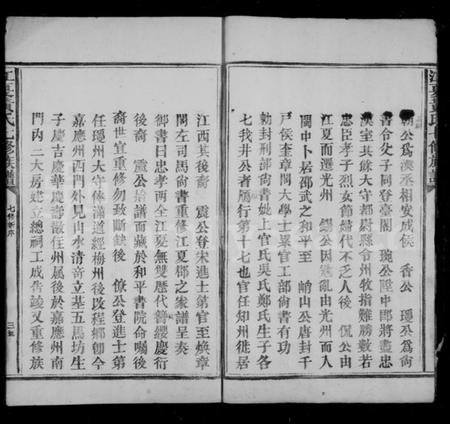 公爲漢丞相安成侯 香公 瓊公爲尚
書令父子同登臺閣 琬公陛中郎將盡忠
漢室其餘大守都尉縣令州牧指難勝數若
忠臣孝子烈女節婦代不乏人後 侃公由
江夏而遷光州 錫公因亂由光州而入
閩中卜居邵武之和平至 峭山公唐封千
戸侯奎章閣大學士累官工部尚書有功
勅封刑部尚書娩上官氏吳氏鄭氏生子各
七我井公者鴈行第十七也官任知州徙居
江夏黃氏七修族譜
七修新序
江西其後裔 震公登宋進士第官至煥章
閣左司馬尚書重修江夏郡之家譜呈奏
御書曰忠孝兩全江夏無雙歷代簪纓慶衍
後裔 震公給譜而藏於和平書院命囑後
裔世宜重修勿致斷缺後 僚公登進士第
任瓊州大守俸滿道經梅州後改程鄉卽今
嘉應州西門外見山水清奇立基五馬坊生
子慶吉慶華慶壽散任州屬後於嘉應州南
門内二大房建立總祠工成告竣又重修族